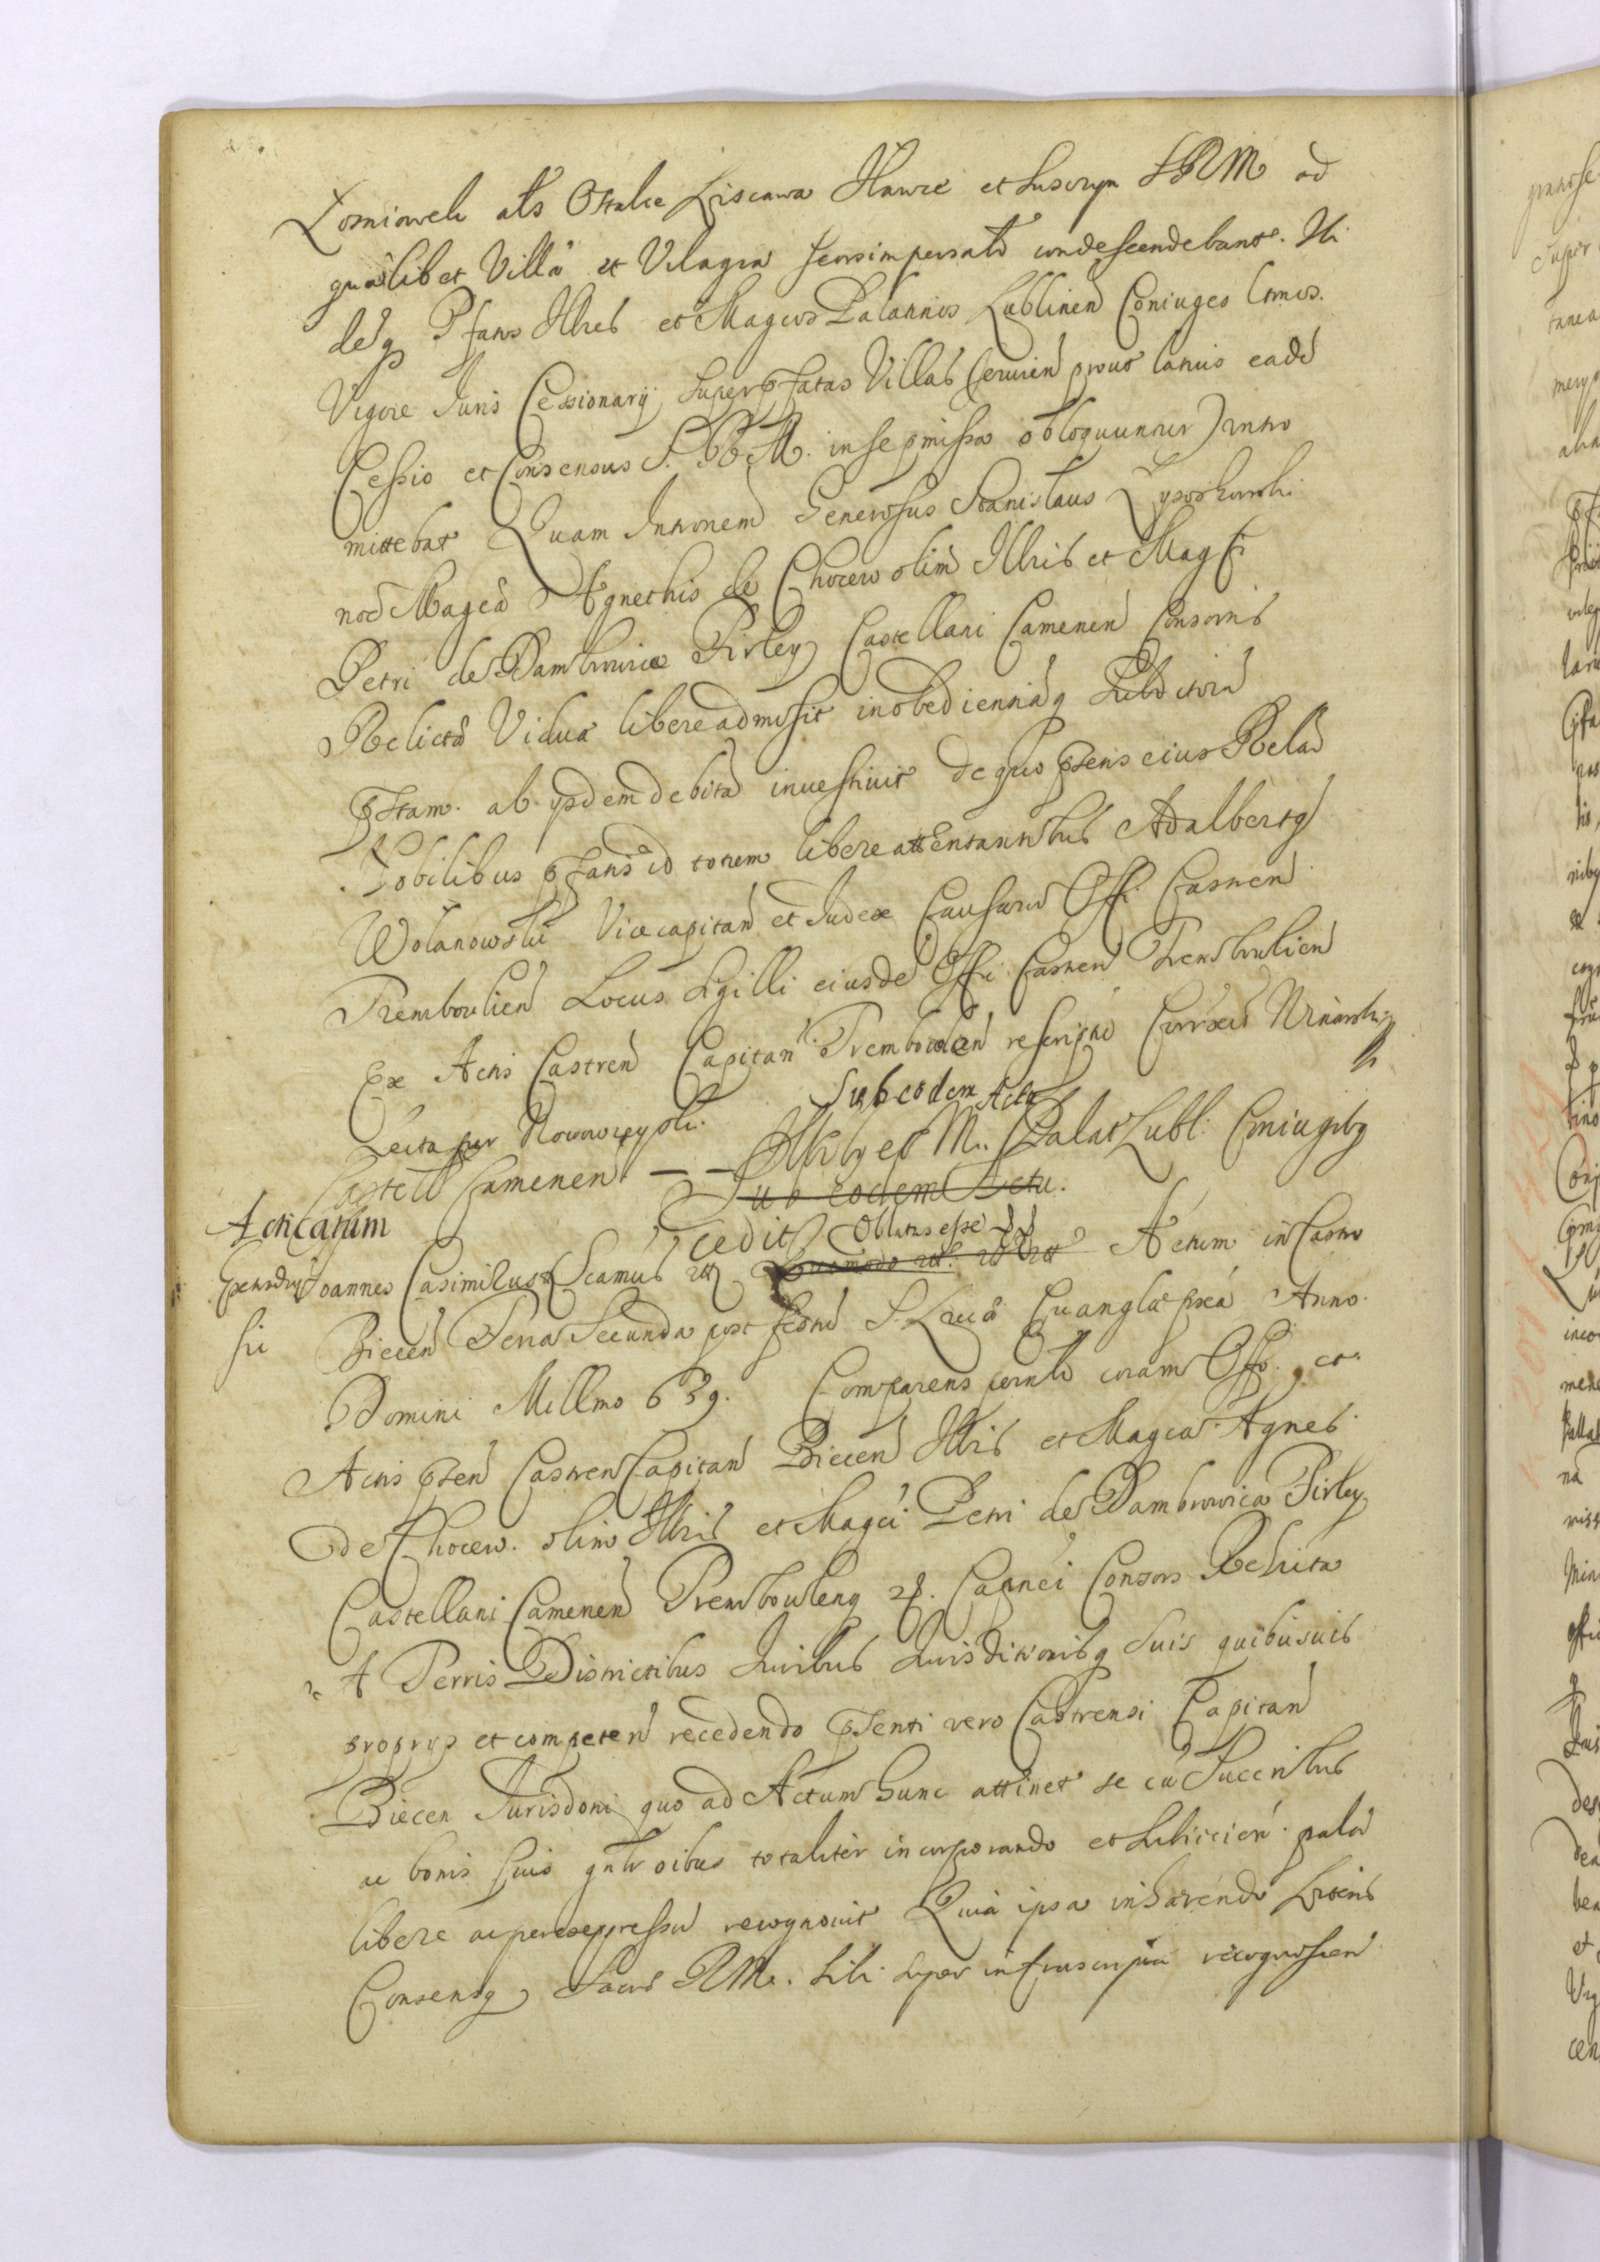 Łosniowek als Ostalce Liscawa Hawcze et Suszczyn SRM ad
quālibet Villā et Villagia seorsim personalr condescendebant. Ibi
deq Pfatos Illres et Magcos Palatinos Lublinen Coniuges Ltmos.
Vigore Juris Cessionarij super pfatas Villas servien prout latius eadē
Cessio et Consensus S. R. M. in se pmissa obloquuntur) intro
mittebat Quam Introonem Generosus Stanislaus
noē Magcā Agnethis de Chocew olim Illris et Magfi
Petri de Dambrowica Firley Castellani Camenen Consortis
Relictā Vidua libere admisit inobedientiāq Subditorū
pstam. ab ysdem debita investivit de quo psens eius Relao
Nobilibus pfatis id totum libere attentantibus Adalbertq
Wolanowski Vicecapitan et Judex Causarū Offi Castren
Trembowlien Locus Sigilli eiusdē Offi Castren Trembowlien
Ex Actis Castren Capitan Trembowlien rescript Correxit
Lecta per Nowowieyski.
Sub eodem Actu
Castell Camenen — — Illribq et M. Palat Lubl: Coniugibq
Sub eodem Actu.
Acticatum
cedit Oblatus esse
Joannes Casimirus Actum in Castro
Biecen Feria Secunda post festū S. Lucā Euanglæ pxa Anno.
Domini Millmo 639. Comparens psonlr coram Offo. et
Actis psen Castren Capitan Biecen Illris et Magca Agnes
de Chocew. olim Illris et Magci Petri de Dambrowica Firley
Castellani Camenen Trembowlenq Capnei Consors Relicta
A Terris Districtibus Juribus Jurisditionibq Suis quibusuis
proprys et competen recedendo psenti vero Castrensi Capitan
Biecen Jurisdoni quo ad Actum hunc attinet se cū Succribus
ac bonis suis gnlr oibus totaliter incorporando et subiicien palā
libere ac per expressū recognovit Quia ipsa inhærendo Litteris
Consensq Sacræ RM. sibi super infrascripta recognoscen